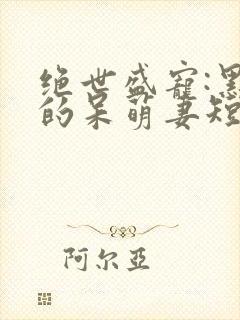 绝世盛宠:黑
的呆萌妻短
阿尔亚